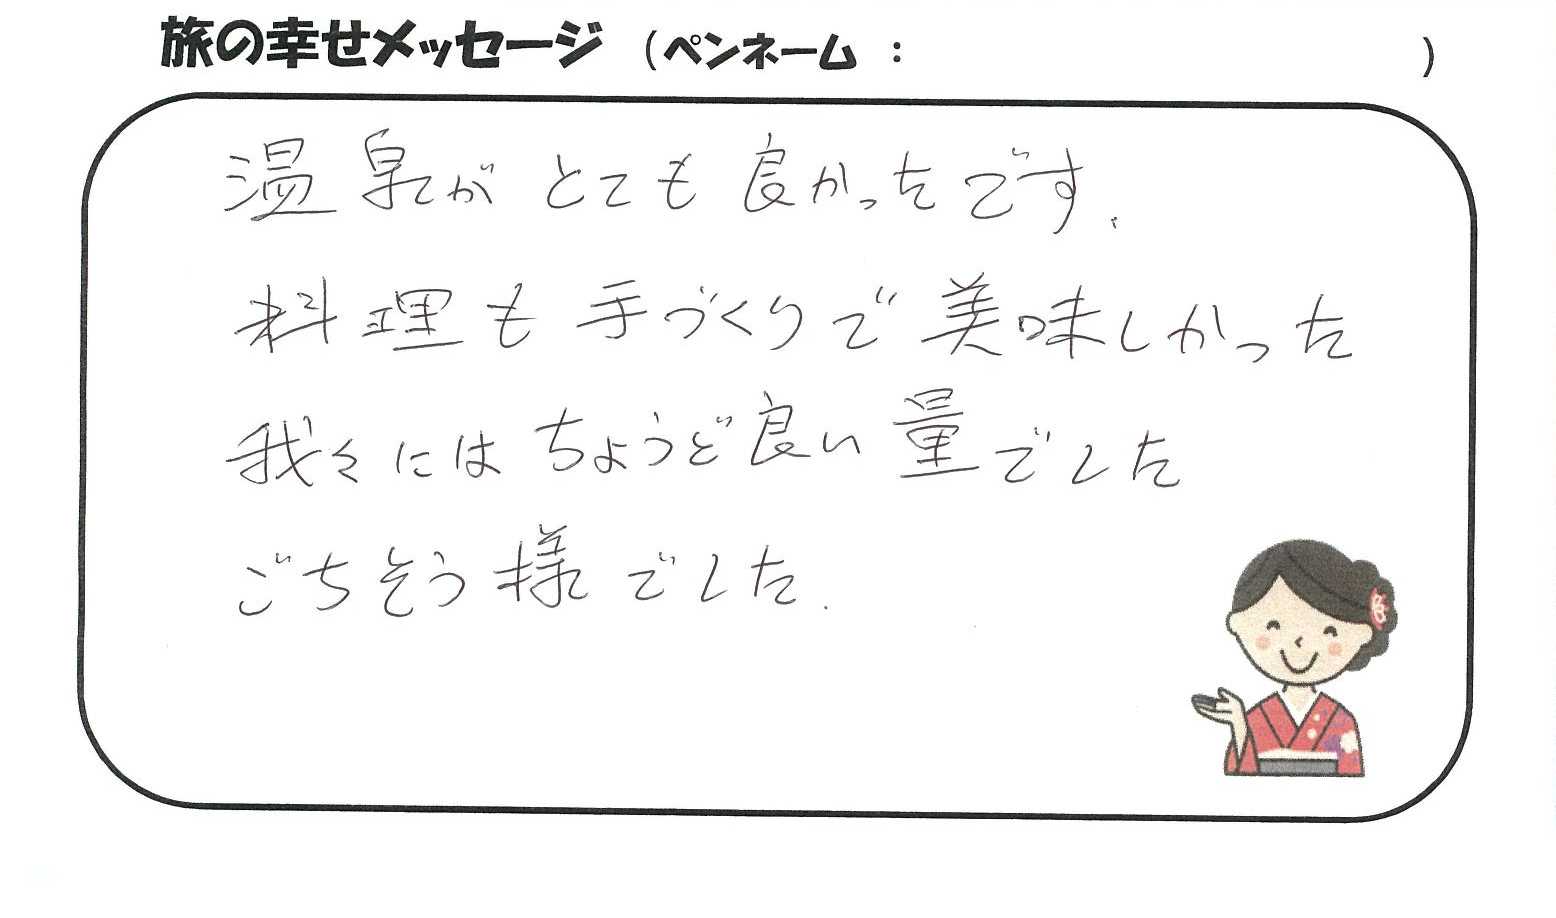 旅の幸せメッセージ (ペンネーム : )
温泉がとても良かったです.
料理も手づくりで美味しかった
我々にはちょうど良い量でした
ごちそう様でした.